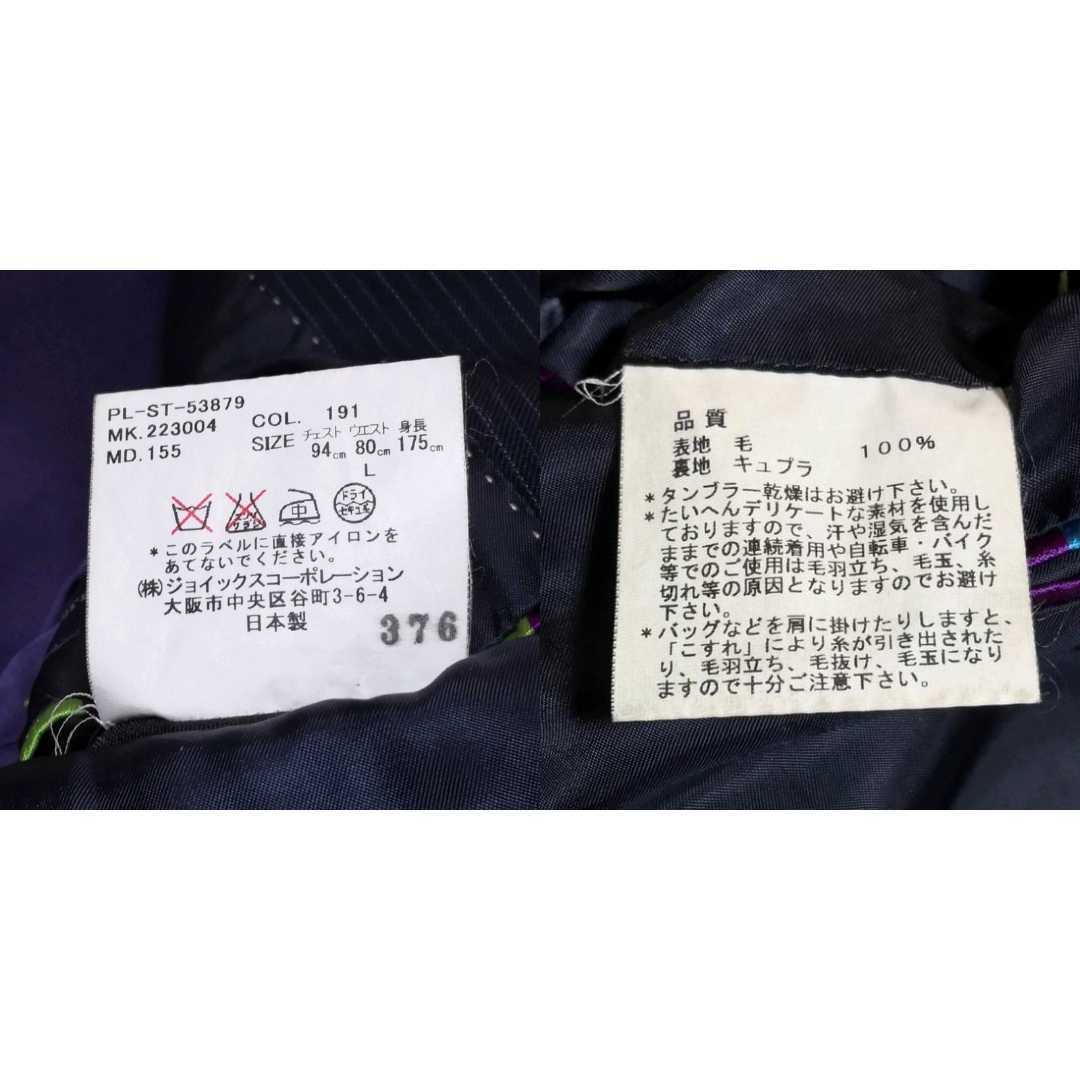 PL-ST-53879
MK.223004 COL. 191
MD.155 SIZE チェスト ウエスト 身長
94cm 80cm 175cm
L
エンソ サラシ 中 ドライ セキユ系
*このラベルに直接アイロンを
あてないでください。
(株)ジョイックスコーポレーション
大阪市中央区谷町3-6-4
日本製
376
品質
表地 毛 100%
裏地 キュプラ
*タンブラー乾燥はお避け下さい。
*たいへんデリケートな素材を使用し
ておりますので、汗や湿気を含んだ
ままでの連続着用や自転車・バイク
等でのご使用は毛羽立ち、毛玉、糸
切れ等の原因となりますのでお避け
下さい。
*バッグなどを肩に掛けたりしますと、
「こすれ」により糸が引き出された
り、毛羽立ち、毛抜け、毛玉になり
ますので十分ご注意下さい。